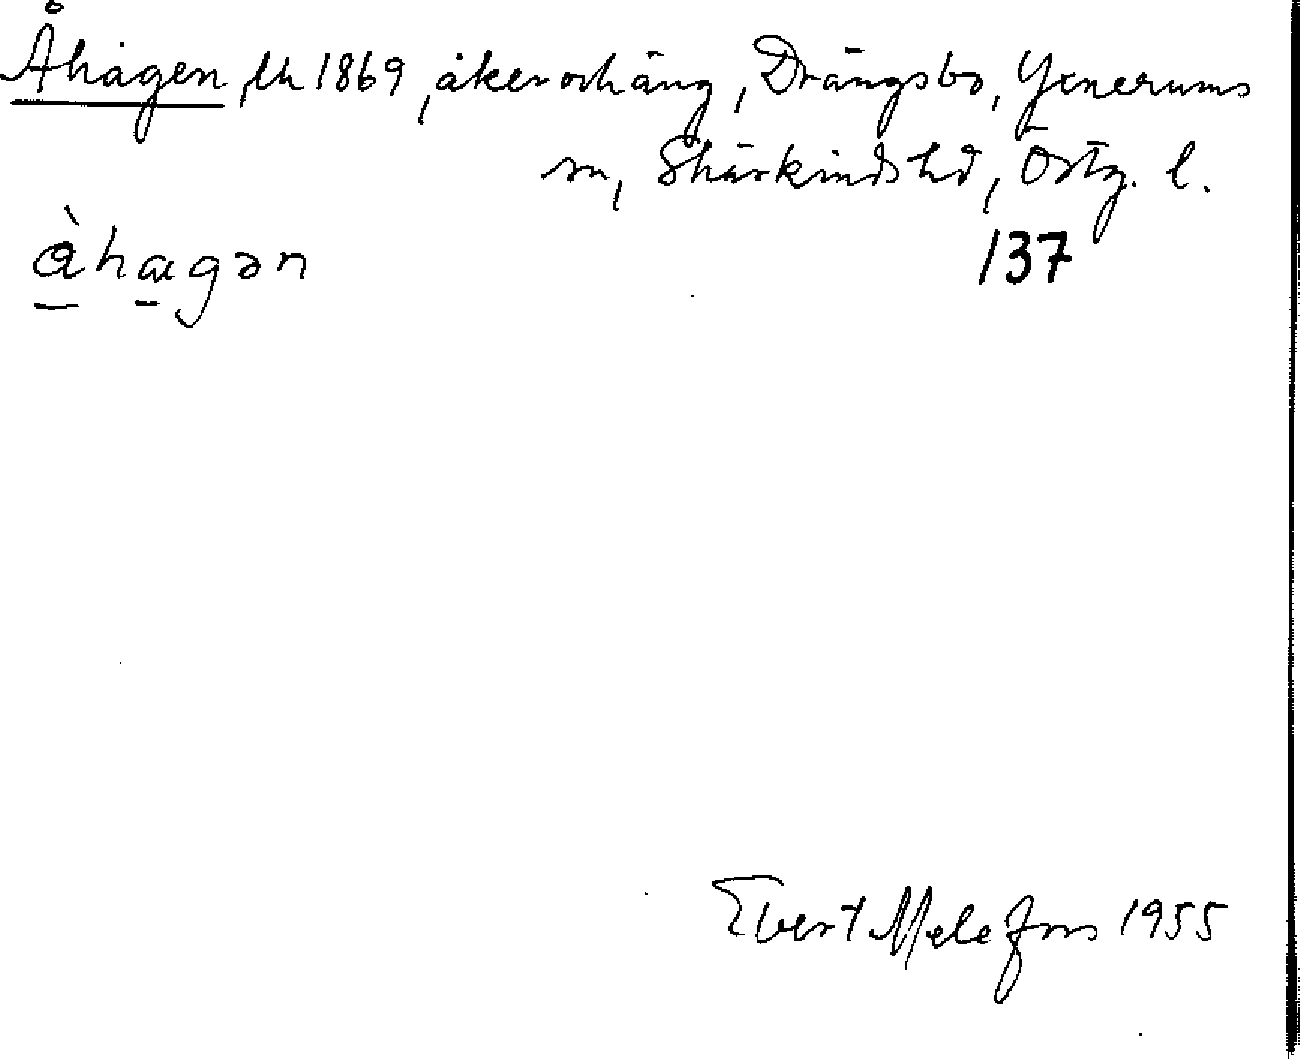 Åhagen, lh 1869, åker och äng, Drängsbo, Yxnerums
sn, Skärkinds hd, Östg. l.
137
åhagən
Evert Melefors 1955